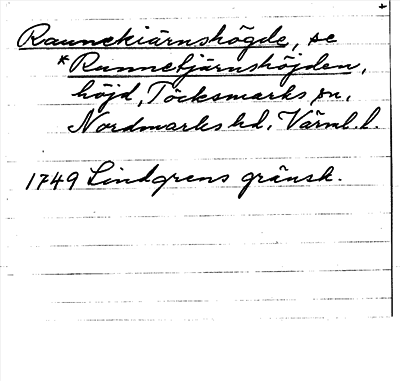 Raunekiärnshögde, se
*Rannetjärnshöjden,
höjd, Töcksmarks sn,
Nordmarks hd, Värml. l.
1749 Lindgrens gränsk.